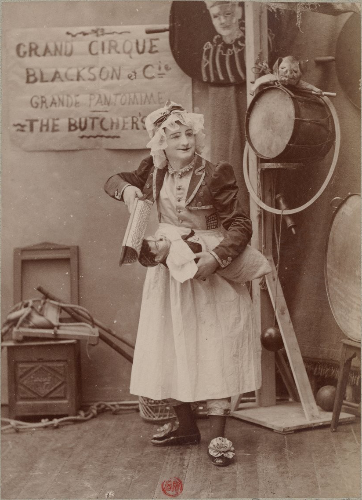 GRAND CIRQUE
BLACKSON et Cie
GRANDE PANTOMIME
THE BUTCHER'S